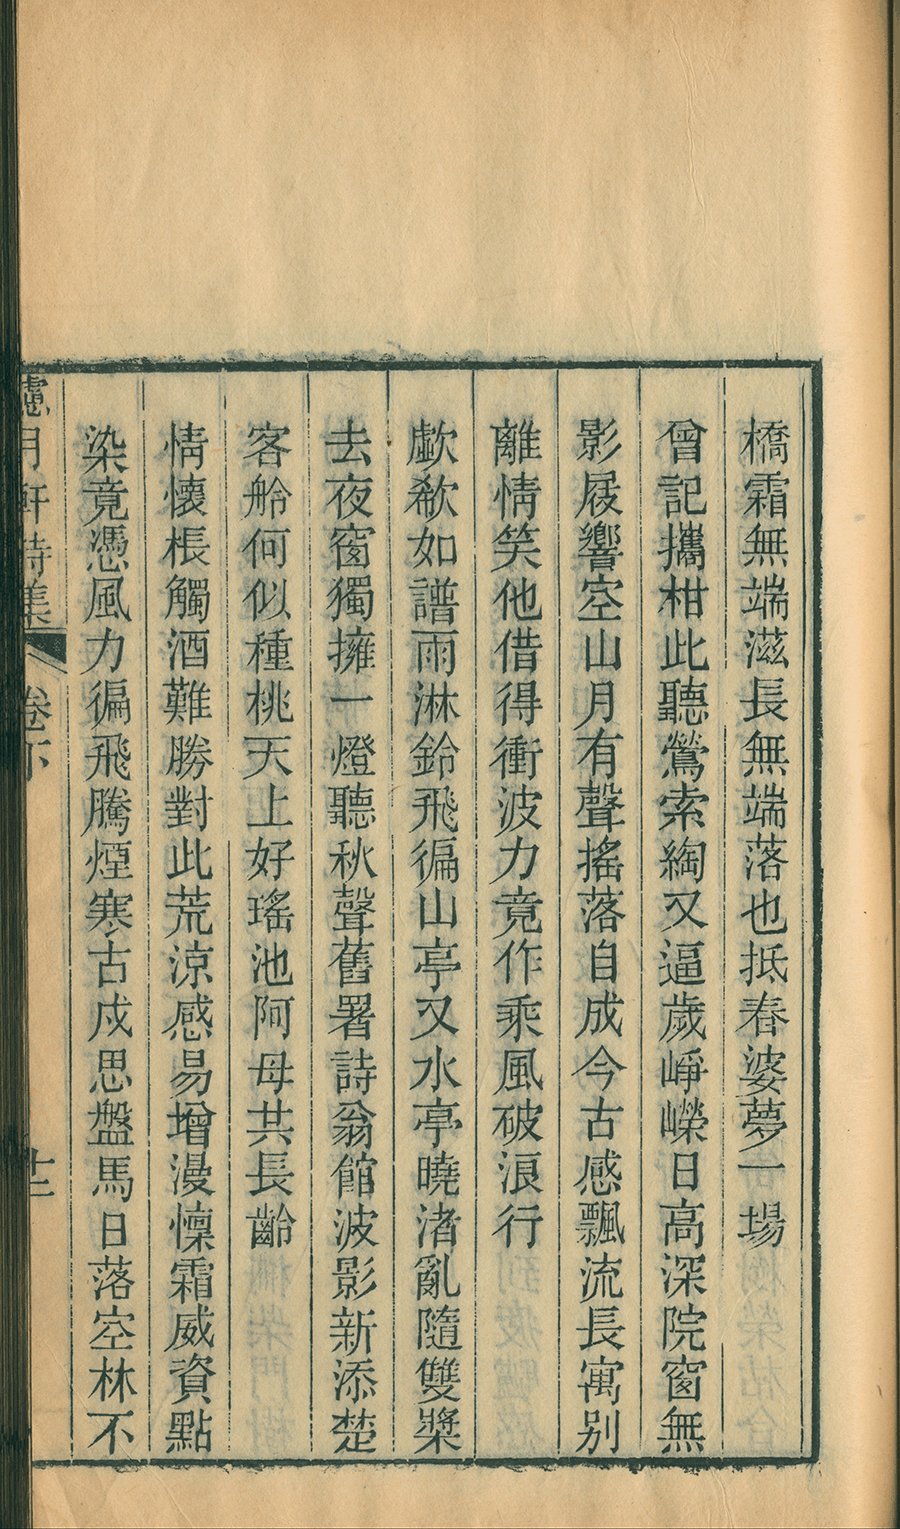 橋霜無端滋長無端落也抵春婆夢一場
曾記攜柑此聽鶯索綯又逼歲崢嶸日高深院窗無
影屐響空山月有聲搖落自成今古感飄流長寓別
離情笑他借得衝波力竟作乘風破浪行
歔欷如譜雨淋鈴飛徧山亭又水亭曉渚亂隨雙槳
去夜窗獨擁一燈聽秋聲舊署詩翁館波影新添楚
客舲何似種桃天上好瑤池阿母共長齡
情懷棖觸酒難勝對此荒涼感易增漫懍霜威資點
染竟憑風力徧飛騰煙寒古戍思盤馬日落空林不
月軒詩集
卷下
十二